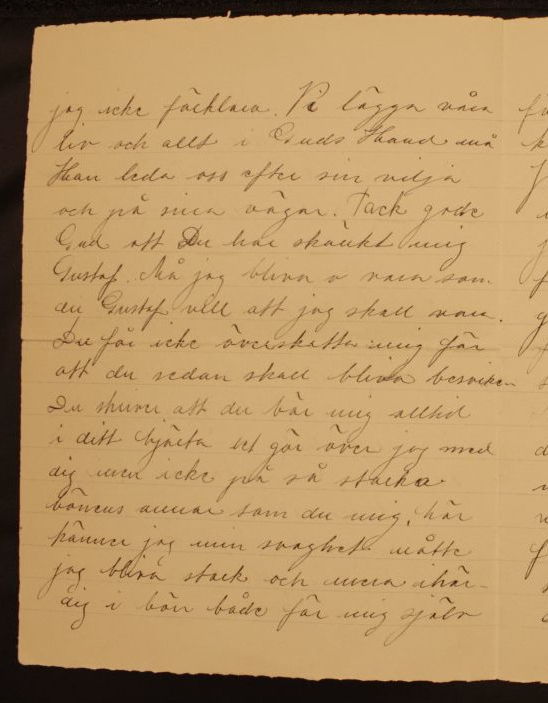 jag icke förklara. Vi lägga våra
liv och allt i Guds Hand må
Han leda oss efter sin vilja
och på sina vägar. Tack gode
Gud att Du har skänkt mig
Gustaf. Må jag bliva o vara som
du Gustaf vill att jag skall vara.
Du får icke överskatta mig för
att du sedan skall bliva besviken
Du skriver att du bär mig alltid
i ditt hjärta det gör även jag med
dig men icke på så starka
bönens armar som du mig, här
känner jag min svaghet måtte
jag bliva stark och mera ihär-
dig i bön både för mig själv